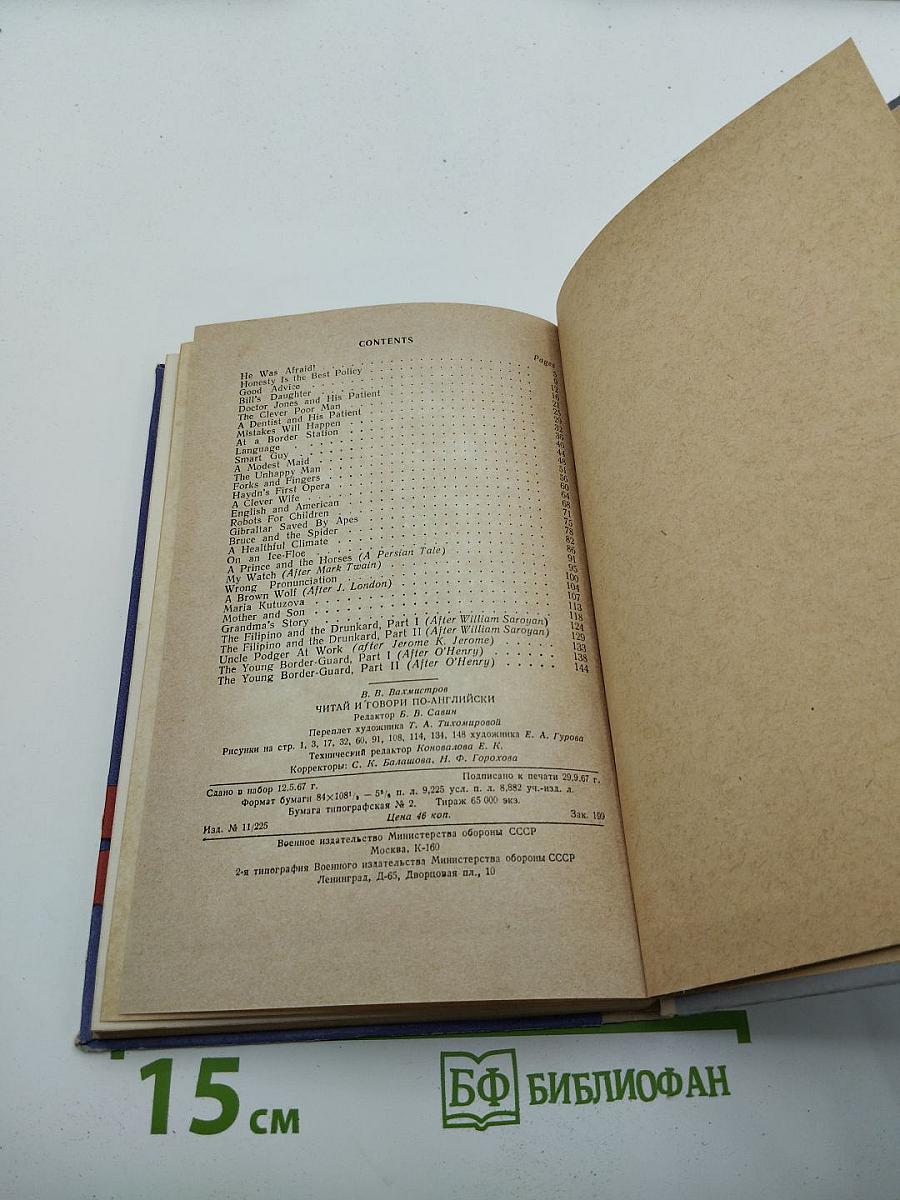 CONTENTS
Pages
He Was Afraid!
Honesty Is the Best Policy
Good Advice 12
Bill's Daughter 16
Doctor Jones and His Patient 21
The Clever Poor Man 25
A Dentist and His Patient 29
Mistakes Will Happen 32
At a Border Station 36
Language 40
Smart Guy 44
A Modest Maid 48
The Unhappy Man 51
Forks and Fingers 56
Haydn's First Opera 60
A Clever Wife 64
English and American 68
Robots For Children 71
Gibraltar Saved By Apes 75
Bruce and the Spider 78
A Healthful Climate 82
On an Ice-Floe 86
A Prince and the Horses (A Persian Tale) 91
My Watch (After Mark Twain) 95
Wrong Pronunciation 100
A Brown Wolf (After J. London) 104
Maria Kutuzova 107
Mother and Son 113
Grandma's Story 118
The Filipino and the Drunkard, Part I (After William Saroyan) 124
The Filipino and the Drunkard, Part II (After William Saroyan) 129
Uncle Podger At Work (after Jerome K. Jerome) 133
The Young Border-Guard, Part I (After O'Henry) 138
The Young Border-Guard, Part II (After O'Henry) 144
В. В. Вахмистров
ЧИТАЙ И ГОВОРИ ПО-АНГЛИЙСКИ
Редактор Б. В. Савин
Переплет художника Т. А. Тихомировой
Рисунки на стр. 1, 3, 17, 32, 60, 91, 108, 114, 134, 148 художника Е. А. Гурова
Технический редактор Коновалова Е. К.
Корректоры: С. К. Балашова, Н. Ф. Горохова
Сдано в набор 12.5.67 г. Подписано к печати 29.9.67 г.
Формат бумаги 84×108¹/₃ — 5⁵/₈ п. л. 9,225 усл. п. л. 8,882 уч.-изд. л.
Бумага типографская № 2. Тираж 65 000 экз.
Изд. № 11/225 Цена 46 коп. Зак. 199
Военное издательство Министерства обороны СССР
Москва, К-160
2-я типография Военного издательства Министерства обороны СССР
Ленинград, Д-65, Дворцовая пл., 10
15 см
БФ БИБЛИОФАН